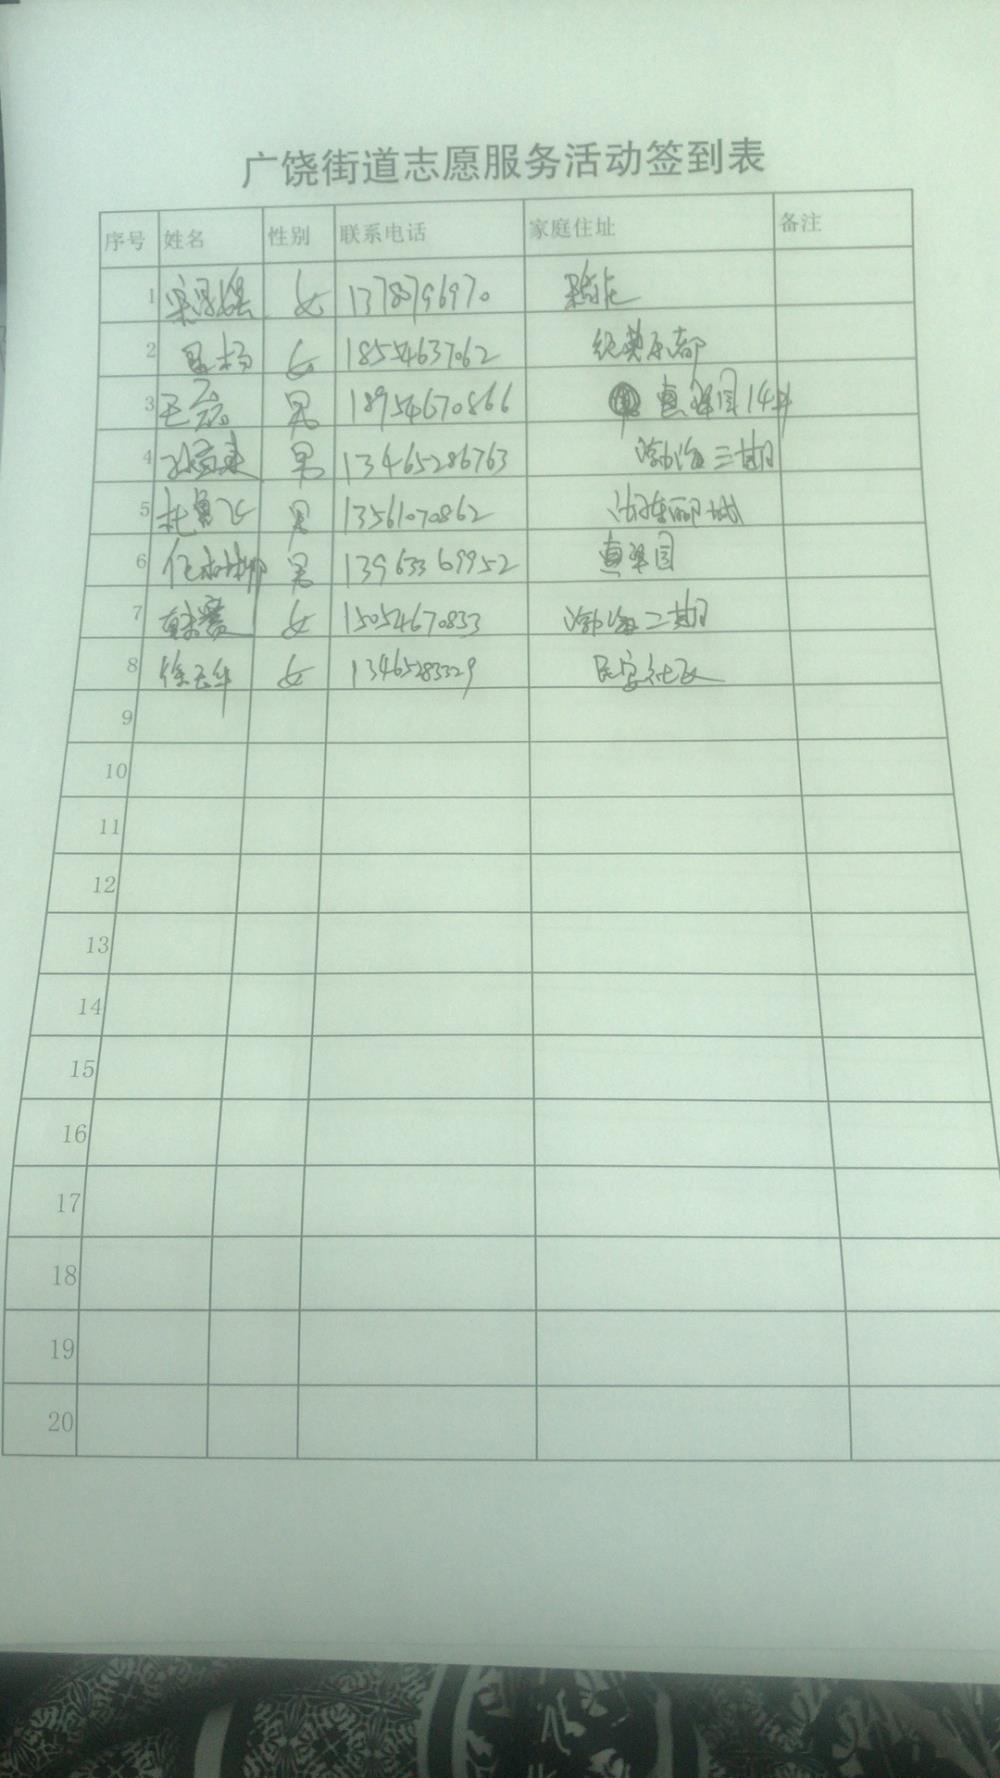 广饶街道志愿服务活动签到表
序号 姓名 性别 联系电话 家庭住址 备注
1 女 13787796970
2 女 18554637062 经典原都
3 王磊 男 18954670866 惠泽园14#
4 男 13465286763 渤海三期
5 杜勇飞 男 13561070862 丽城
6 男 13963369952 惠泽园
7 女 15054670853 渤海二期
8 徐玉华 女 13465283329 民安社区
9
10
11
12
13
14
15
16
17
18
19
20